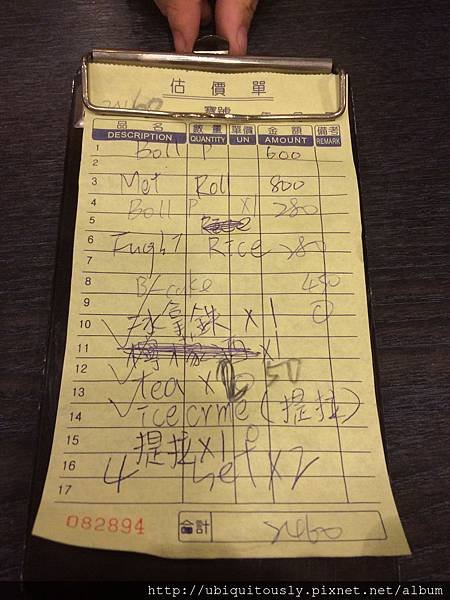 估價單
2460
寶號 年 月 日
品名 數量 單價 金額 備考
DESCRIPTION QUANTITY UN AMOUNT REMARK
1 Boll P 600
2
3 Met Roll 800
4 Boll P X1 280
5
6 Rice 280
7
8 B/cake 450
9
10 冰拿鐵 x1
11 x1
12
13 tea x 50
14 ice crme (提拉)
15 提拉x1
16 4 set x2
17
082894 合計 2460
http://ubiquitously.pixnet.net/album